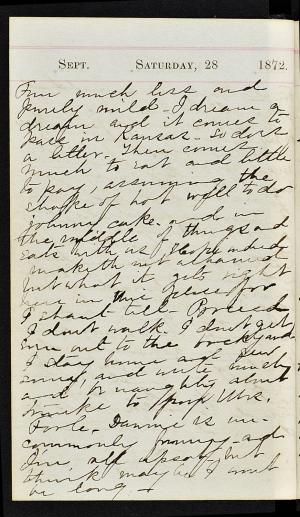 SEPT. SATURDAY, 28 1872.
Fire much less and
purely mild - I dream a
dream and it comes to
pass in Kansas - So does
a letter - Then comes
much to eat and little
to pay, assuming the
shape of hot well to do
johnny cake - and in
the middle of things
eats with us / Hope
maketh not ashamed
but what it gets right
here in this place for
I shant tell - Proceed
I dont walk I dont get
even out to the backyard
I stay home and sew
some, and write
and
to Mrs.
Foote - Dannie is un-
commonly funny - and
I'm all upset, but
think maybe I wont
be long -